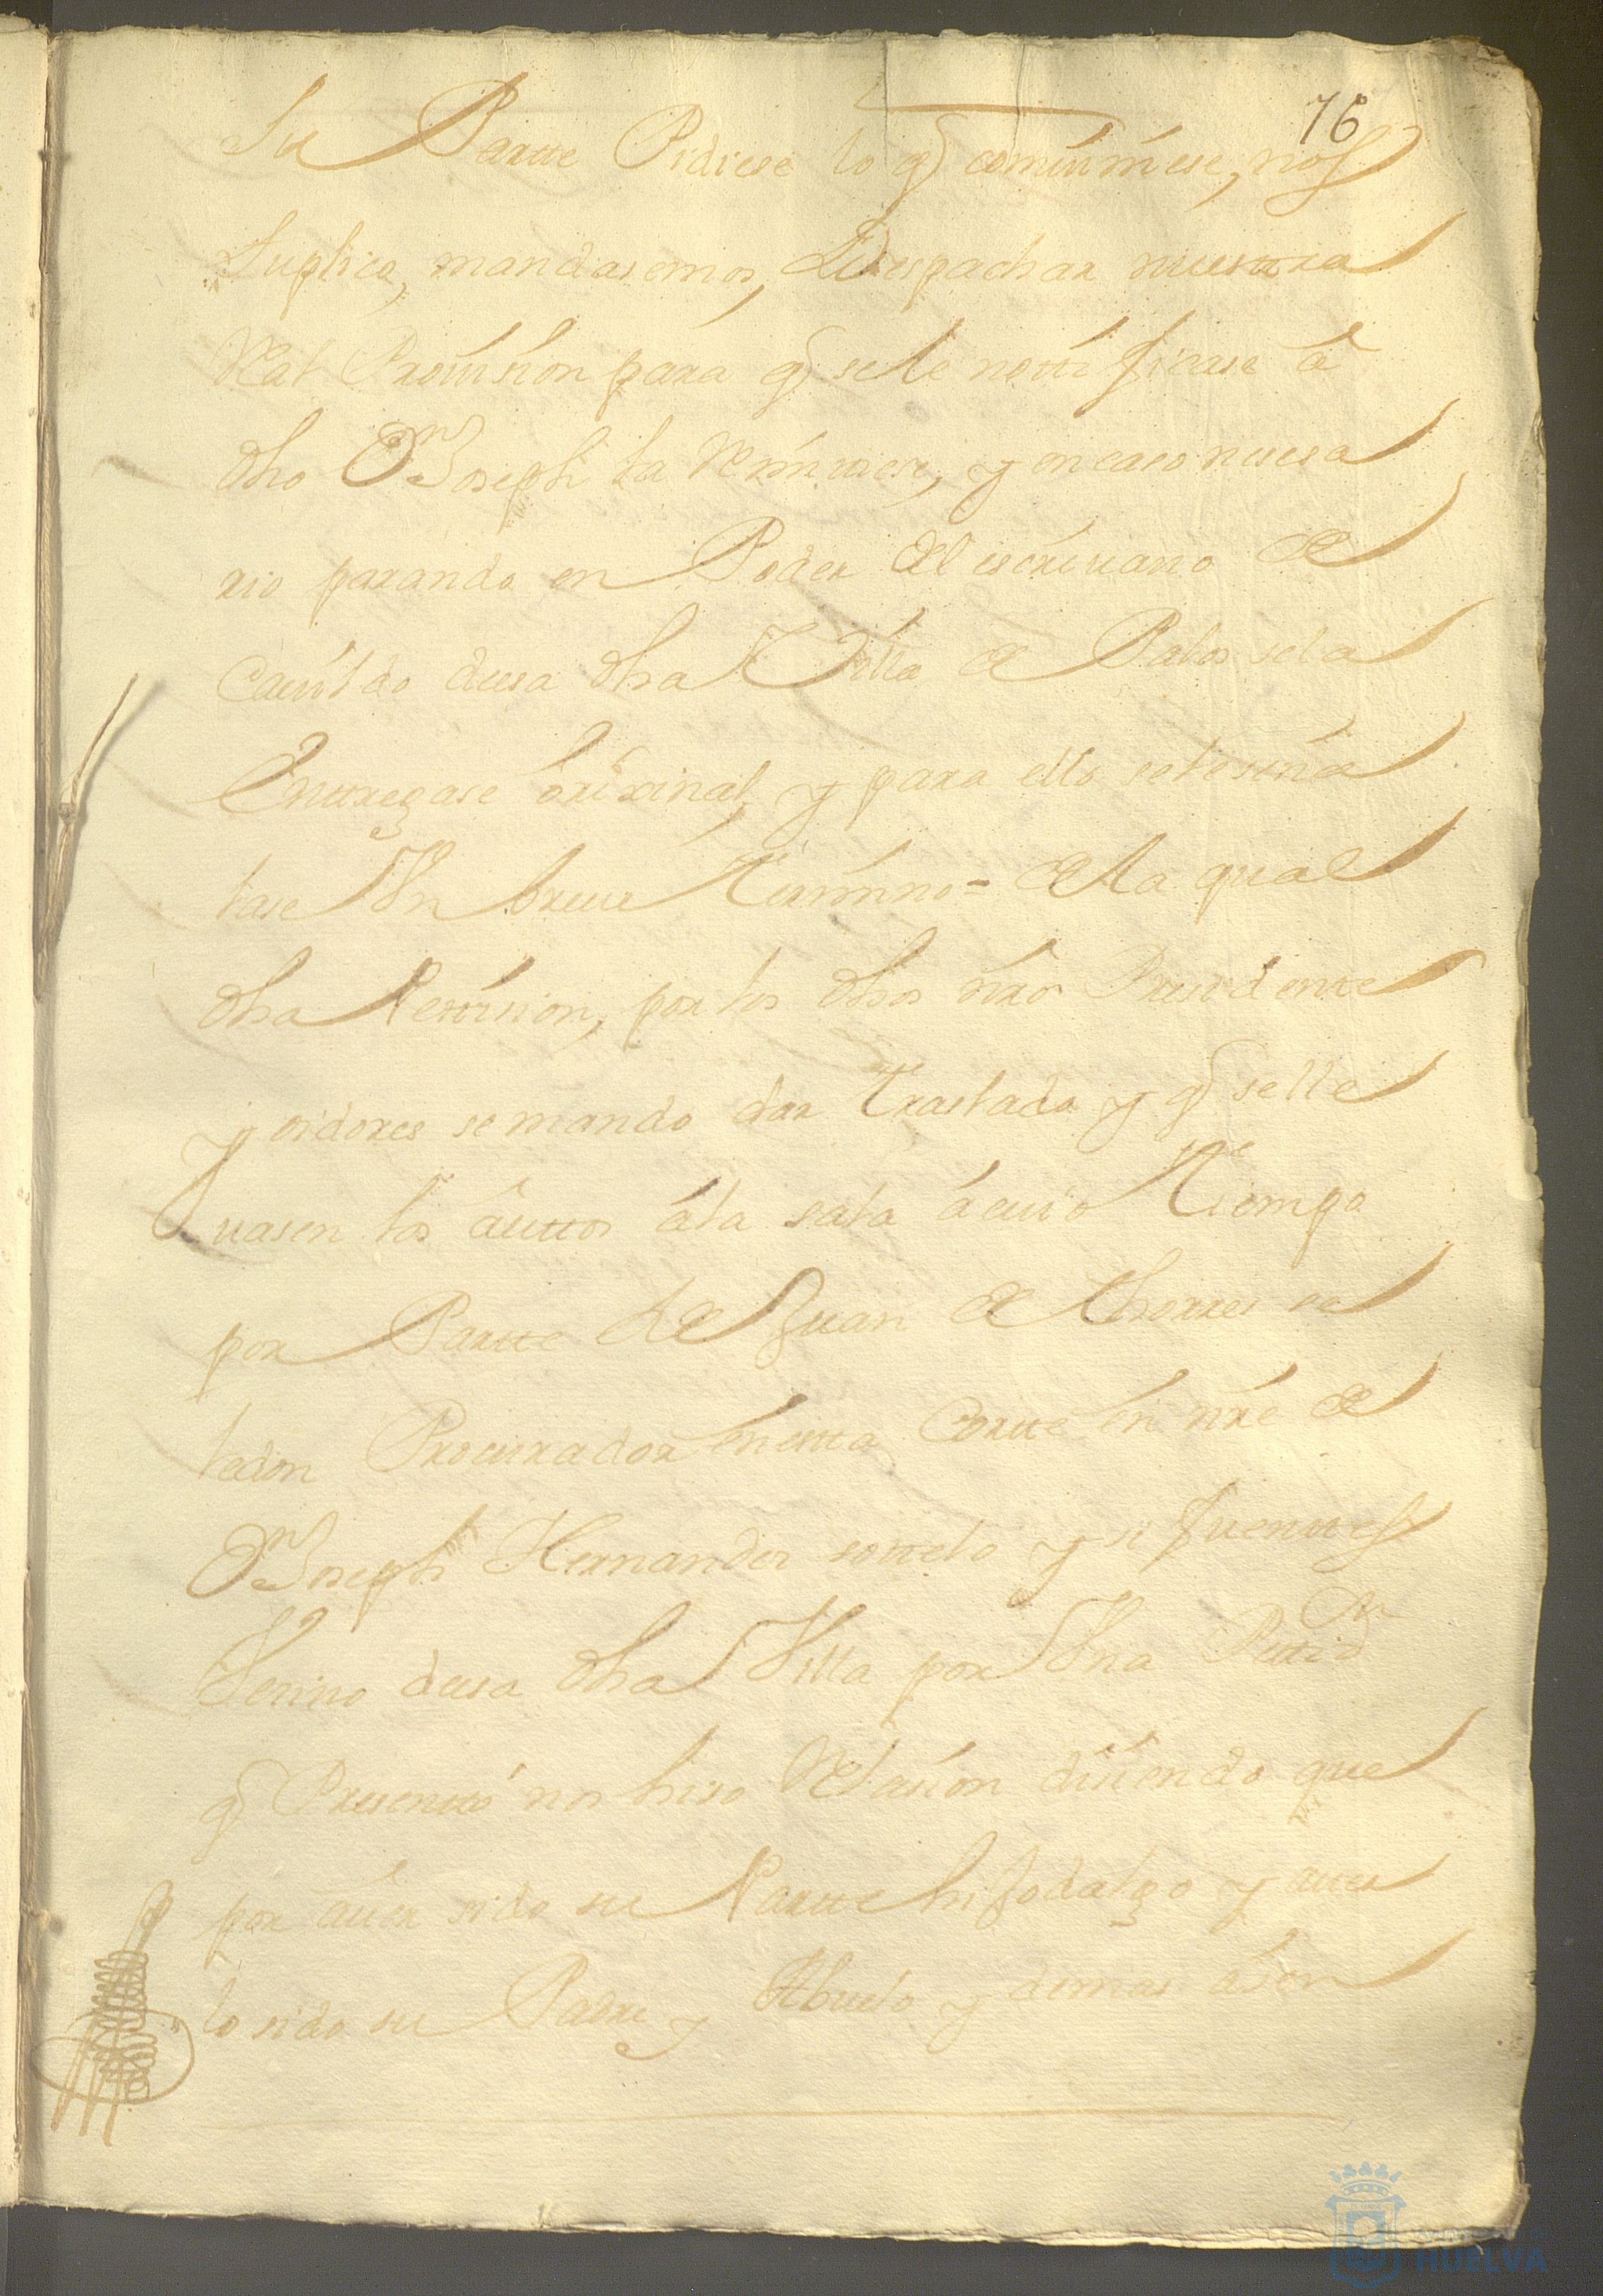 76
Su Partte Pidiese lo q combiniese, nos
Suplico, mandasemos, Despachar nuestra
Real Provision para q se le nottificase â
dho Dn Joseph la Remitiese, y en caso nesesa
rio parando en Poder del escrivano de
Cavildo desa dha Villa de Palos se la
Enttregase orixinal, y para ello se le seña
lase Un breve Termino = de la qual
dha Pettision, por los dhos nros Presidentte
y oidores se mando dar Traslado y q se lle
vasen los auttos â la sala â cuio Tiempo
por Partte de Juan de Thorres
ledon Procurador en estta Cortte en nre de
Dn Joseph Hernandes sottelo y sifuenttes
Vecino desa dha Villa por Una Pettion
q Presentto nos hiso Relasion disiendo que
por aver sido su Partte hijodalgo y aver
lo sido su Padre y Abuelo y demas asen
HUELVA